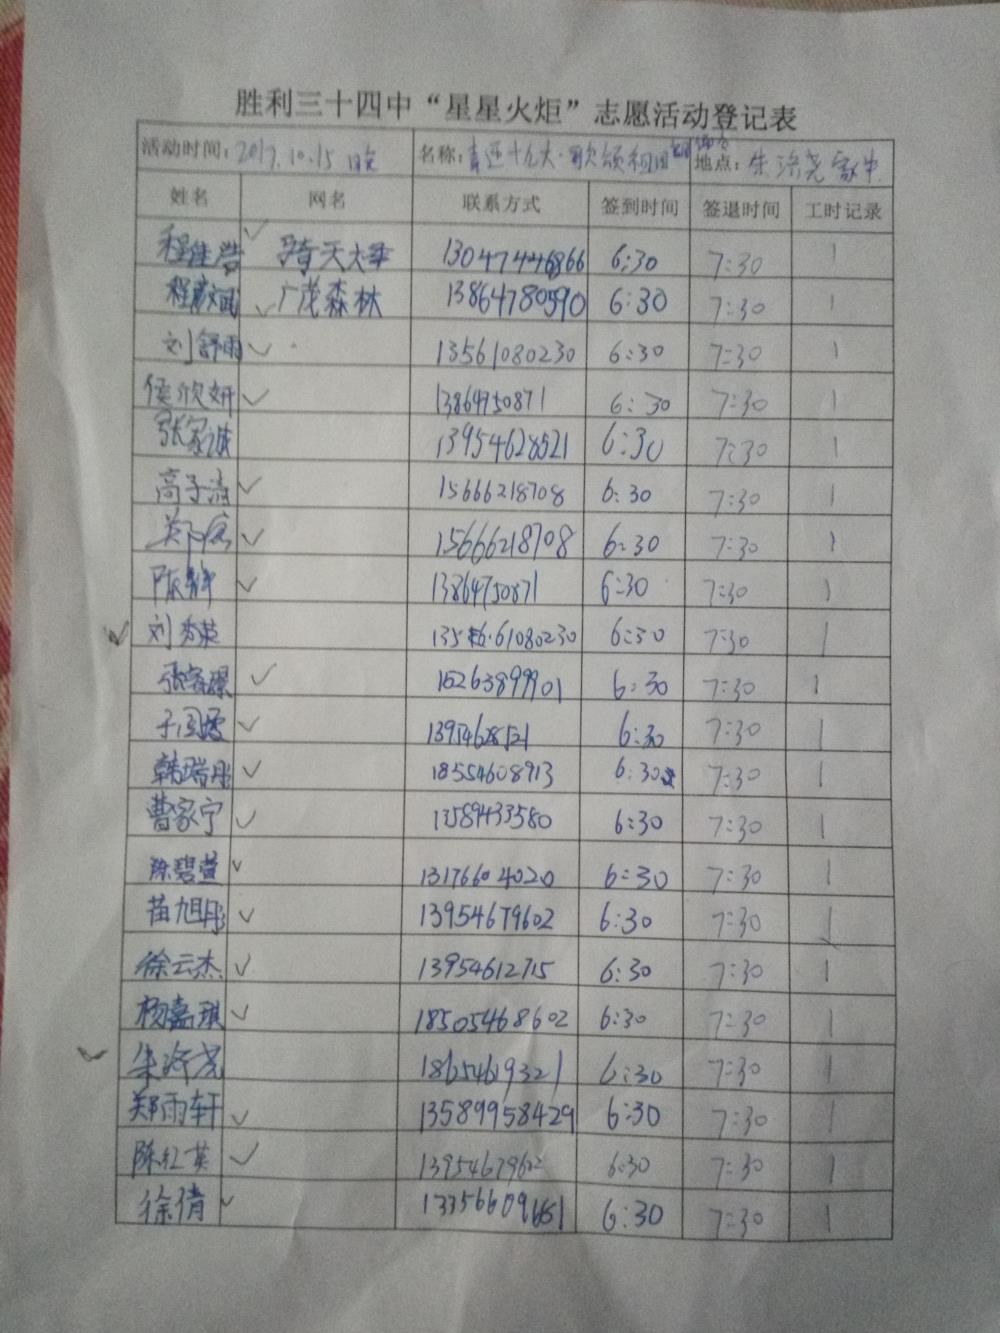 胜利三十四中“星星火炬”志愿活动登记表
活动时间：2017.10.15 晚 名称：喜迎十九大·歌颂祖国 地点：朱济尧家中
姓名 网名 联系方式 签到时间 签退时间 工时记录
程佳浩 ✓ 齐天大圣 6:30 7:30 1
程 ✓ 广茂森林 13864780590 6:30 7:30 1
刘舒雨 ✓ 13561080230 6:30 7:30 1
侯欣妍 ✓ 13864750871 6:30 7:30 1
张家诚 13954628521 6:30 7:30 1
高子清 ✓ 15666218708 6:30 7:30 1
✓ 15666218708 6:30 7:30 1
陈静 ✓ 13864750871 6:30 7:30 1
✓ 刘秀英 6:30 7:30 1
张 ✓ 15263899901 6:30 7:30 1
✓ 13954628521 6:30 7:30 1
韩瑞彤 ✓ 18554608913 6:30 7:30 1
曹家宁 ✓ 13589433580 6:30 7:30 1
陈碧萱 ✓ 13176604020 6:30 7:30 1
苗旭彤 ✓ 13954679602 6:30 7:30 1
徐云杰 ✓ 13954612715 6:30 7:30 1
杨嘉琪 ✓ 18505468602 6:30 7:30 1
✓ 朱济尧 18654619321 6:30 7:30 1
郑雨轩 ✓ 13589958429 6:30 7:30 1
陈红英 ✓ 13954679602 6:30 7:30 1
徐倩 ✓ 6:30 7:30 1